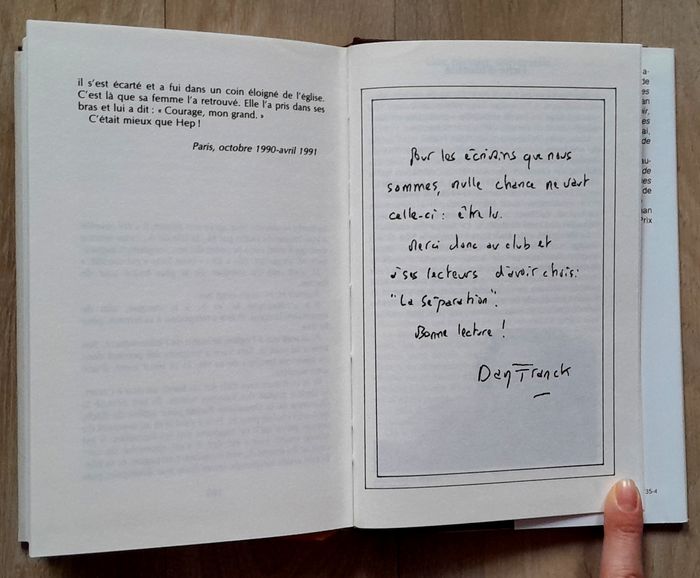 il s'est écarté et a fui dans un coin éloigné de l'église.
C'est là que sa femme l'a retrouvé. Elle l'a pris dans ses
bras et lui a dit : « Courage, mon grand. »
C'était mieux que Hep !
Paris, octobre 1990-avril 1991
Pour les écrivains que nous
sommes, nulle chance ne vaut
celle-ci : être lu.
Merci donc au club et
à ses lecteurs d'avoir choisi
"La Séparation".
Bonne lecture !
Dan Franck
35-4